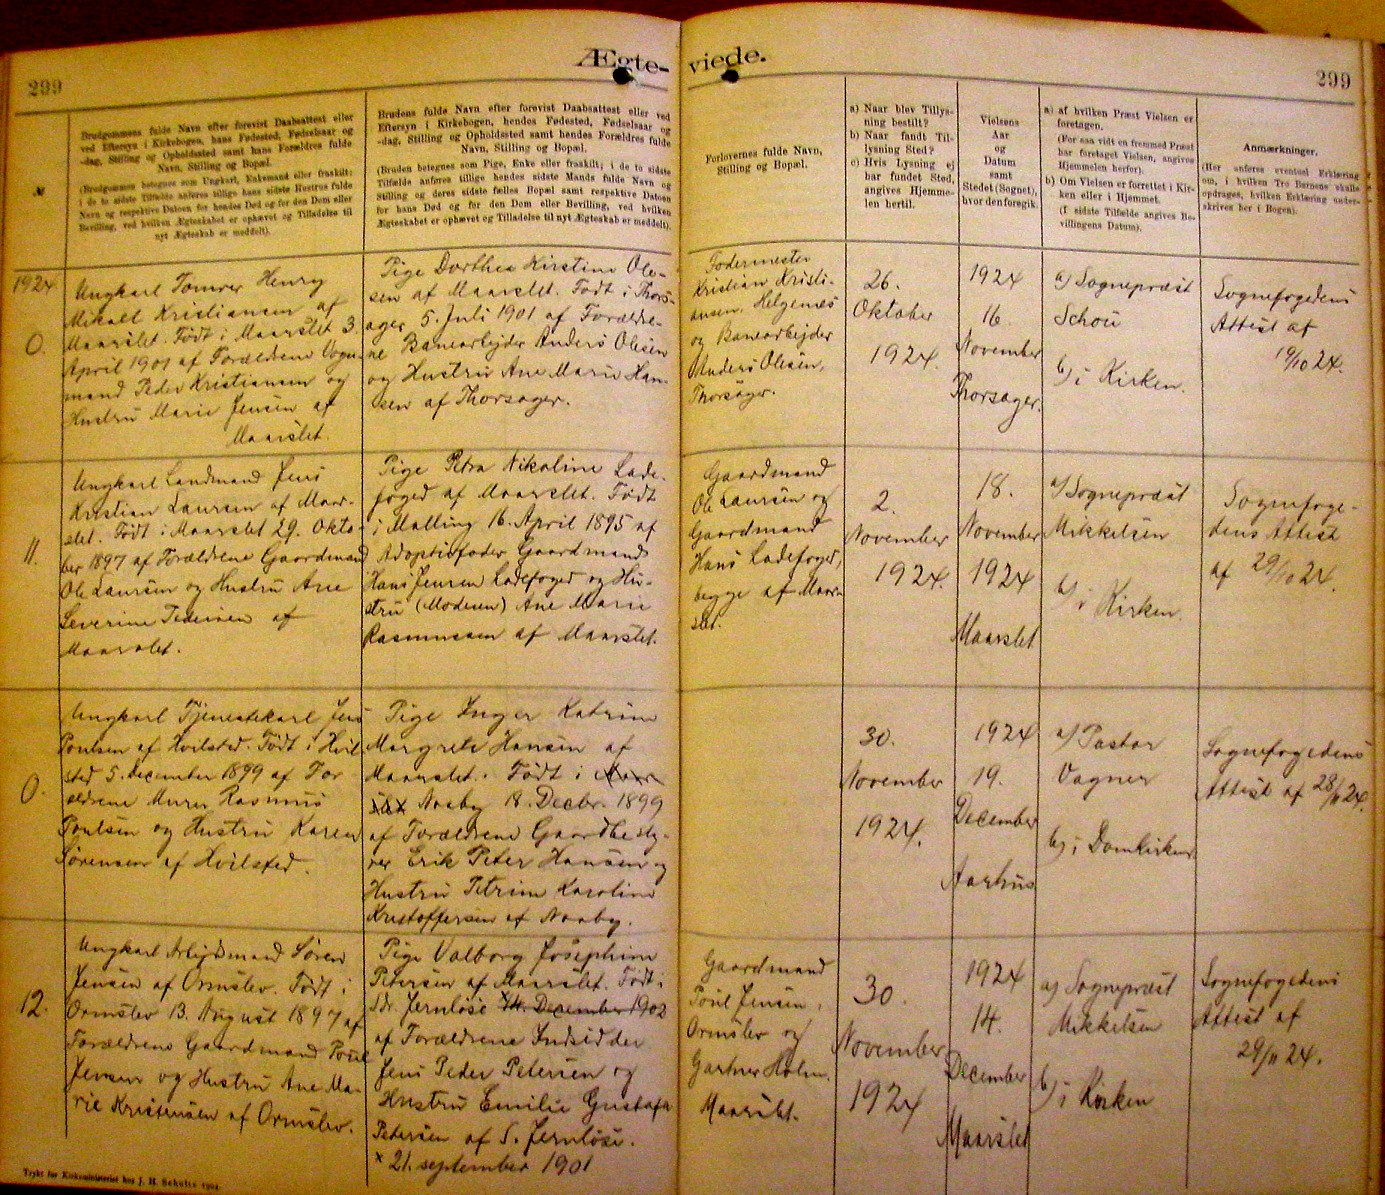 299
Ægte-
viede.
299
№
Brudgommens fulde Navn efter forevist Daabsattest eller
ved Eftersyn i Kirkebogen, hans Fødested, Fødselsaar og
-dag, Stilling og Opholdssted samt hans Forældres fulde
Navn, Stilling og Bopæl.
(Brudgommen betegnes som Ungkarl, Enkemand eller fraskilt;
i de to sidste Tilfælde anføres tillige hans sidste Hustrus fulde
Navn og respektive Datoen for hendes Død og for den Dom eller
Bevilling, ved hvilken Ægteskabet er ophævet og Tilladelse til
nyt Ægteskab er meddelt).
Brudens fulde Navn efter forevist Daabsattest eller ved
Eftersyn i Kirkebogen, hendes Fødested, Fødselsaar og
-dag, Stilling og Opholdssted samt hendes Forældres fulde
Navn, Stilling og Bopæl.
(Bruden betegnes som Pige, Enke eller fraskilt; i de to sidste
Tilfælde anføres tillige hendes sidste Mands fulde Navn og
Stilling og deres sidste fælles Bopæl samt respektive Datoen
for hans Død og for den Dom eller Bevilling, ved hvilken
Ægteskabet er ophævet og Tilladelse til nyt Ægteskab er meddelt).
Forlovernes fulde Navn,
Stilling og Bopæl.
a) Naar blev Tillys-
ning bestilt?
b) Naar fandt Til-
lysning Sted?
c) Hvis Lysning ej
har fundet Sted,
angives Hjemme-
len hertil.
Vielsens
Aar
og
Datum
samt
Stedet (Sognet),
hvor den foregik.
a) af hvilken Præst Vielsen er
foretagen.
(For saa vidt en fremmed Præst
har foretaget Vielsen, angives
Hjemmelen herfor).
b) Om Vielsen er forrettet i Kir-
ken eller i Hjemmet.
(I sidste Tilfælde angives Be-
villingens Datum).
Anmærkninger.
(Her anføres eventuel Erklæring
om, i hvilken Tro Børnene skulle
opdrages, hvilken Erklæring under-
skrives her i Bogen).
1924
0.
Ungkarl Tømrer Henry
Mikael Kristiansen af
Maarslet. Født i Maarslet 3.
April 1901 af Forældrene Vogn-
mand Peder Kristiansen og
Hustru Marie Jensen af
Maarslet.
Pige Dorthea Kirstine Ole-
sen af Maarslet. Født i Thors-
ager 5. Juli 1901 af Forældre-
ne Banearbejder Anders Olesen
og Hustru Ane Marie Han-
sen af Thorsager.
Fodermester
Kristian Kristi-
ansen. Helgenæs
og Banearbejder
Anders Olesen,
Thorsager.
26.
Oktober
1924.
1924
16.
November
Thorsager.
a) Sognepræst
Schou
b) i Kirken.
Sognefogedens
Attest af
19/10 24.
11.
Ungkarl Landmand Jens
Kristian Laursen af Maar-
slet. Født i Maarslet 29. Okto-
ber 1897 af Forældrene Gaardmand
Ole Laursen og Hustru Ane
Severine Pedersen af
Maarslet.
Pige Petra Nikoline Lade-
foged af Maarslet. Født
i Malling 16. April 1895 af
Adoptivfader Gaardmand
Hans Jensen Ladefoged og Hu-
stru (Moderen) Ane Marie
Rasmussen af Maarslet.
Gaardmand
Ole Laursen og
Gaardmand
Hans Ladefoged,
begge af Maar-
slet.
2.
November
1924.
18.
November
1924
Maarslet
a) Sognepræst
Mikkelsen
b) i Kirken.
Sognefoge-
dens Attest
af 29/10 24.
0.
Ungkarl Tjenestekarl Jens
Poulsen af Hvilsted. Født i Hvil-
sted 5. december 1899 af For-
ældrene Murer Rasmus
Poulsen og Hustru Karen
Sørensen af Hvilsted.
Pige Inger Katrine
Margrete Hansen af
Maarslet. Født i Maar-
slet Naaby 18. Decbr. 1899
af Forældrene Gaardbesty-
rer Erik Peter Hansen og
Hustru Petrine Karoline
Kristoffersen af Naaby.
30.
November
1924.
1924
19.
December
Aarhus
a) Pastor
Vagner
b) i Domkirken
Sognefogedens
Attest af 28/11 24.
12.
Ungkarl Arbejdsmand Søren
Jensen af Ormslev. Født i
Ormslev 13. August 1897 af
Forældrene Gaardmand Poul
Jensen og Hustru Ane Ma-
rie Kristensen af Ormslev.
Pige Valborg Josephine
Petersen af Maarslet. Født i
Sdr. Jernløse 14. December 1902
af Forældrene Indsidder
Jens Peder Petersen og
Hustru Emilie Gustafa
Petersen af S. Jernløse.
× 21. september 1901
Gaardmand
Poul Jensen,
Ormslev og
Gartner Holm.
Maarslet.
30.
November
1924
1924
14.
December
Maarslet
a) Sognepræst
Mikkelsen
b) i Kirken
Sognefogedens
Attest af
29/11 24.
Trykt for Kirkeministeriet hos J. H. Schultz